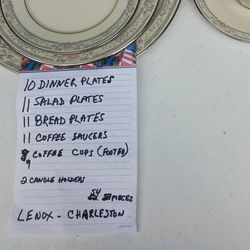 10 DINNER PLATES
11 SALAD PLATES
11 BREAD PLATES
11 COFFEE SAUCERS
9 COFFEE CUPS (FOOTED)
2 CANDLE HOLDERS
54 PIECES
LENOX - CHARLESTON